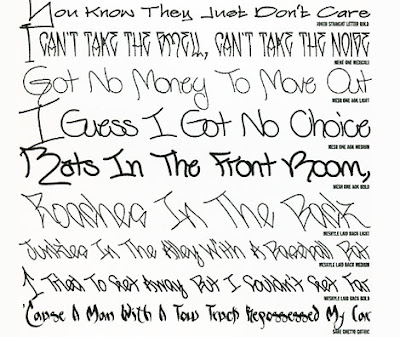 You Know They Just Don't Care
JOKER STRAIGHT LETTER BOLD
I CAN'T TAKE THE SMELL, CAN'T TAKE THE NOISE
MEKE ONE MEDIUM
Got No Money To Move Out
MESH ONE AOK LIGHT
I Guess I Got No Choice
MESH ONE AOK MEDIUM
Rats In The Front Room,
MESH ONE AOK BOLD
Roaches In The Back
MESKYLE LAID BACK LIGHT
Junkies In The Alley With A Baseball Bat
MESKYLE LAID BACK MEDIUM
I Tried To Get Away But I Couldn't Get Far
MESKYLE LAID BACK BOLD
'Cause A Man With A Tow Truck Repossessed My Car
SABE GHETTO GOTHIC